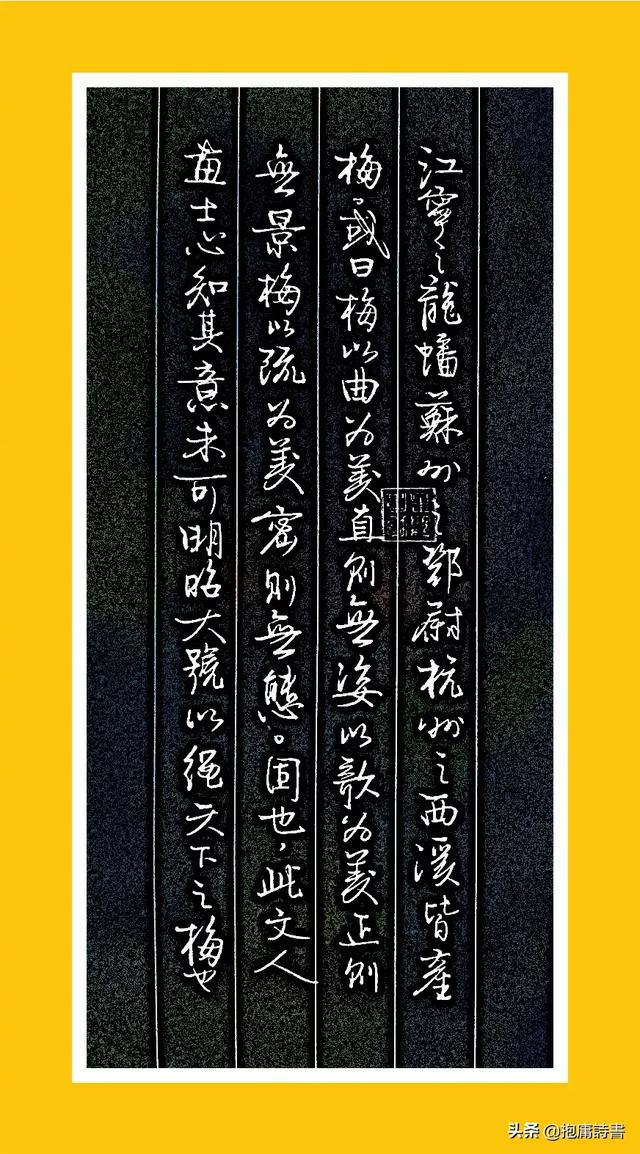 江寧之龍蟠蘇州鄧尉杭州之西溪皆產
梅，或曰梅以曲为美直则無姿以欹为美正则
無景梅以疏为美密则無態。固也，此文人
畫士心知其意未可明昭大號以绳天下之梅也
头条 @抱庸詩書